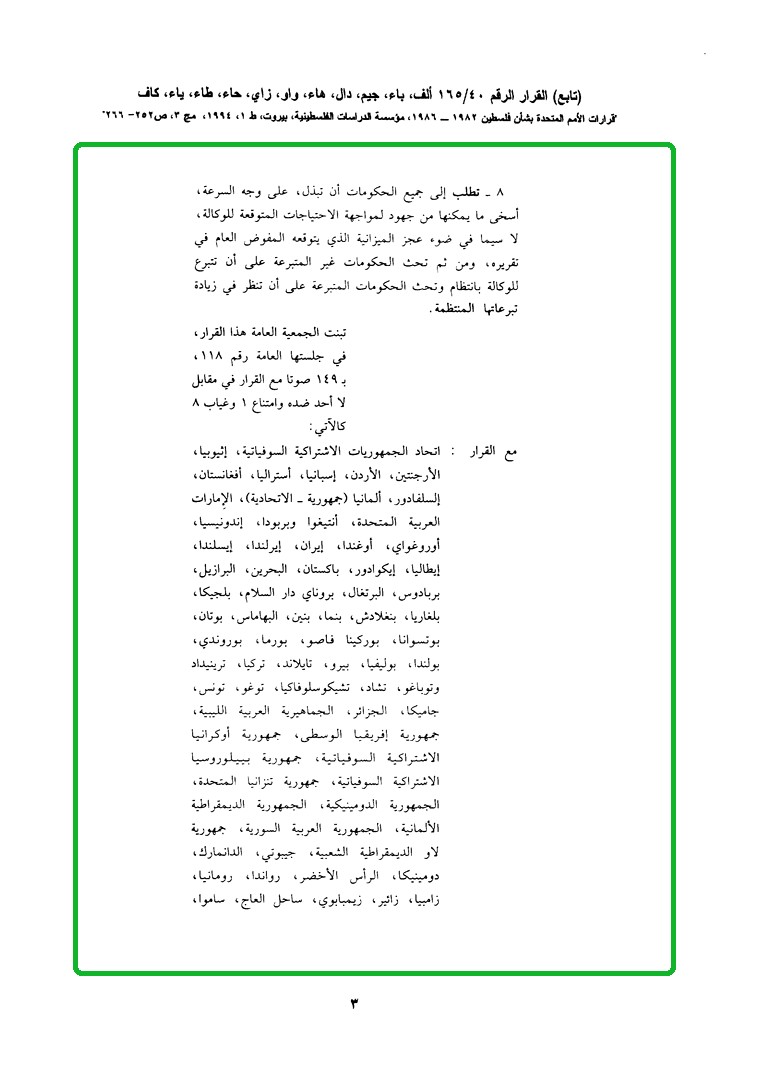 (تابع) القرار الرقم ١٦٥/٤٠ ألف، باء، جيم، دال، هاء، واو، زاي، حاء، طاء، ياء، كاف
"قرارات الأمم المتحدة بشأن فلسطين ١٩٨٢ ــ ١٩٨٦، مؤسسة الدراسات الفلسطينية، بيروت، ط ١، ١٩٩٤، مج ٣، ص٢٥٢- ٢٦٦"
٨ ـ تطلب إلى جميع الحكومات أن تبذل، على وجه السرعة،
أسخى ما يمكنها من جهود لمواجهة الاحتياجات المتوقعة للوكالة،
لا سيما في ضوء عجز الميزانية الذي يتوقعه المفوض العام في
تقريره، ومن ثم تحث الحكومات غير المتبرعة على أن تتبرع
للوكالة بانتظام وتحث الحكومات المتبرعة على أن تنظر في زيادة
تبرعاتها المنتظمة.
تبنت الجمعية العامة هذا القرار،
في جلستها العامة رقم ١١٨،
بـ ١٤٩ صوتا مع القرار في مقابل
لا أحد ضده وامتناع ١ وغياب ٨
كالآتي:
مع القرار : اتحاد الجمهوريات الاشتراكية السوفياتية، إثيوبيا،
الأرجنتين، الأردن، إسبانيا، أستراليا، أفغانستان،
إلسلفادور، ألمانيا (جمهورية ـ الاتحادية)، الإمارات
العربية المتحدة، أنتيغوا وبربودا، إندونيسيا،
أوروغواي، أوغندا، إيران، إيرلندا، إيسلندا،
إيطاليا، إيكوادور، باكستان، البحرين، البرازيل،
بربادوس، البرتغال، بروناي دار السلام، بلجيكا،
بلغاريا، بنغلادش، بنما، بنين، البهاماس، بوتان،
بوتسوانا، بوركينا فاصو، بورما، بوروندي،
بولندا، بوليفيا، بيرو، تايلاند، تركيا، ترينيداد
وتوباغو، تشاد، تشيكوسلوفاكيا، توغو، تونس،
جاميكا، الجزائر، الجماهيرية العربية الليبية،
جمهورية إفريقيا الوسطى، جمهورية أوكرانيا
الاشتراكية السوفياتية، جمهورية بييلوروسيا
الاشتراكية السوفياتية، جمهورية تنزانيا المتحدة،
الجمهورية الدومينيكية، الجمهورية الديمقراطية
الألمانية، الجمهورية العربية السورية، جمهورية
لاو الديمقراطية الشعبية، جيبوتي، الدانمارك،
دومينيكا، الرأس الأخضر، رواندا، رومانيا،
زامبيا، زائير، زيمبابوي، ساحل العاج، ساموا،
٣